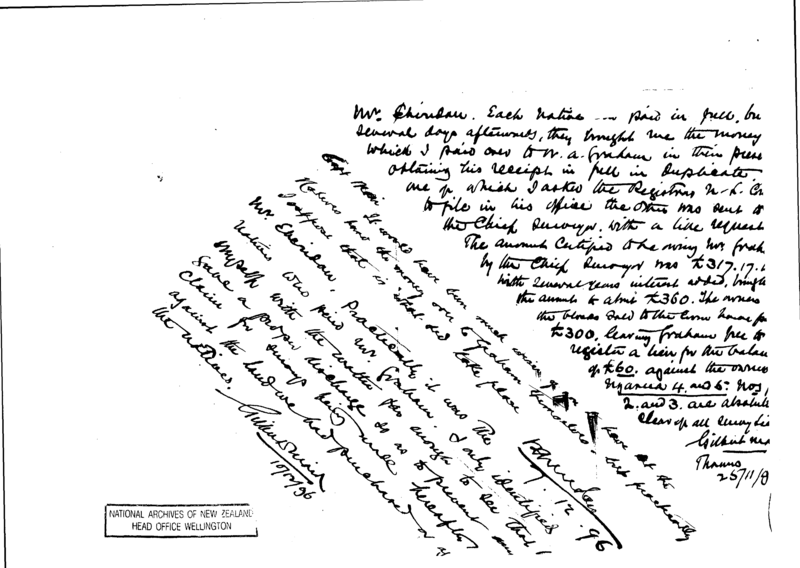 Mr. Sheridan. Each native paid in full, but
several days afterwards, they brought me the money
which I paid over to W. A. Graham in their pres
obtaining his receipt in full in duplicate,
one of which I asked the Registrar N. L. Ct
to file in his office the other was sent to
the Chief Surveyor, with a like request
The amount certified to be owing Mr. Grah
by the Chief Surveyor was £317.17.
with several years interest added, bringing
the amount to about £360. The owners
the blocks sold to the Crown
£300, leaving Graham free to
register a lien for the balan
of £60. against the owners
4. and 5. Nos,
2. and 3. are absolute
clear of all survey lie
Gilbert Ma
Thames
25/11/9
Capt Mair It would have been much
Natives pay the money over to Graham themselves, but practically
I suppose that is what did take place
7.12.96
Mr. Sheridan, Practically it was the
natives who paid Mr. Graham. I only identified
myself with the matter far enough to see that I
gave a proper discharge so as to prevent any
claim for survey being made hereafter
against the land we had purchased or
the natives.
Gilbert Mair
10/12/96
NATIONAL ARCHIVES OF NEW ZEALAND
HEAD OFFICE WELLINGTON